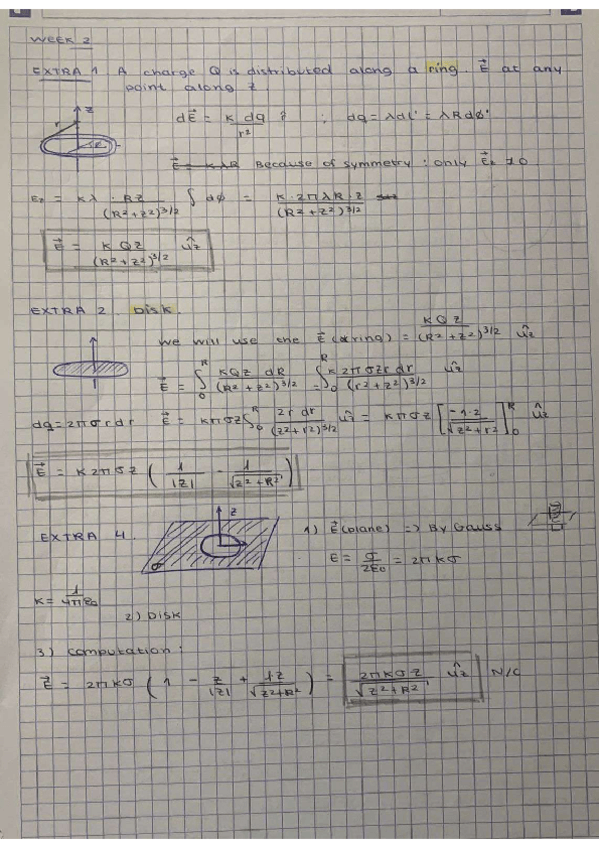 WEEK 2
EXTRA 1 A charge Q is distributed along a ring. E⃗ at any
point along z
z
r
R
dE⃗ = k dq / r² ? ; dq = λdl' = λRdφ'
E⃗ = kλR Because of symmetry: only E⃗z ≠ 0
Ez = kλ · Rz / (R²+z²)^3/2 ∫ dφ = k·2πλR·z / (R²+z²)^3/2
E⃗ = k Q z / (R²+z²)^3/2 ûz
EXTRA 2. Disk.
We will use the E⃗ (ring) = kQz / (R²+z²)^3/2 ûz
E⃗ = ∫₀ᴿ kQz dR / (R²+z²)^3/2 = ∫₀ᴿ k2πσzr dr / (r²+z²)^3/2 ûz
dq = 2πσrdr E⃗ = kπσz ∫₀ᴿ 2r dr / (z²+r²)^3/2 ûz = kπσz [ -1·2 / √z²+r² ]₀ᴿ ûz
E⃗ = k2πσz ( 1/|z| - 1/√z²+R² )
EXTRA 4.
z
σ
1) E⃗ (plane) => By Gauss
E = σ/2ε₀ = 2πkσ
k = 1/4πε₀
2) Disk
3) computation:
E⃗ = 2πkσ ( 1 - z/|z| + 1·z/√z²+R² ) = 2πkσz / √z²+R² ûz N/C